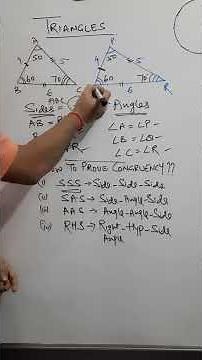 TRIANGLES
A P
50 50
4 5 4 5
60 70 60 70
B 6 C 6 R
Sides Angles
AB = ∠A = ∠P
∠B = ∠Q
∠C = ∠R
HOW TO PROVE CONGRUENCY??
(i) SSS → Side-Side-Side
(ii) SAS → Side-Angle-Side
(iii) AAS → Angle-Angle-Side
(iv) RHS → Right-Hyp-Side
Angle